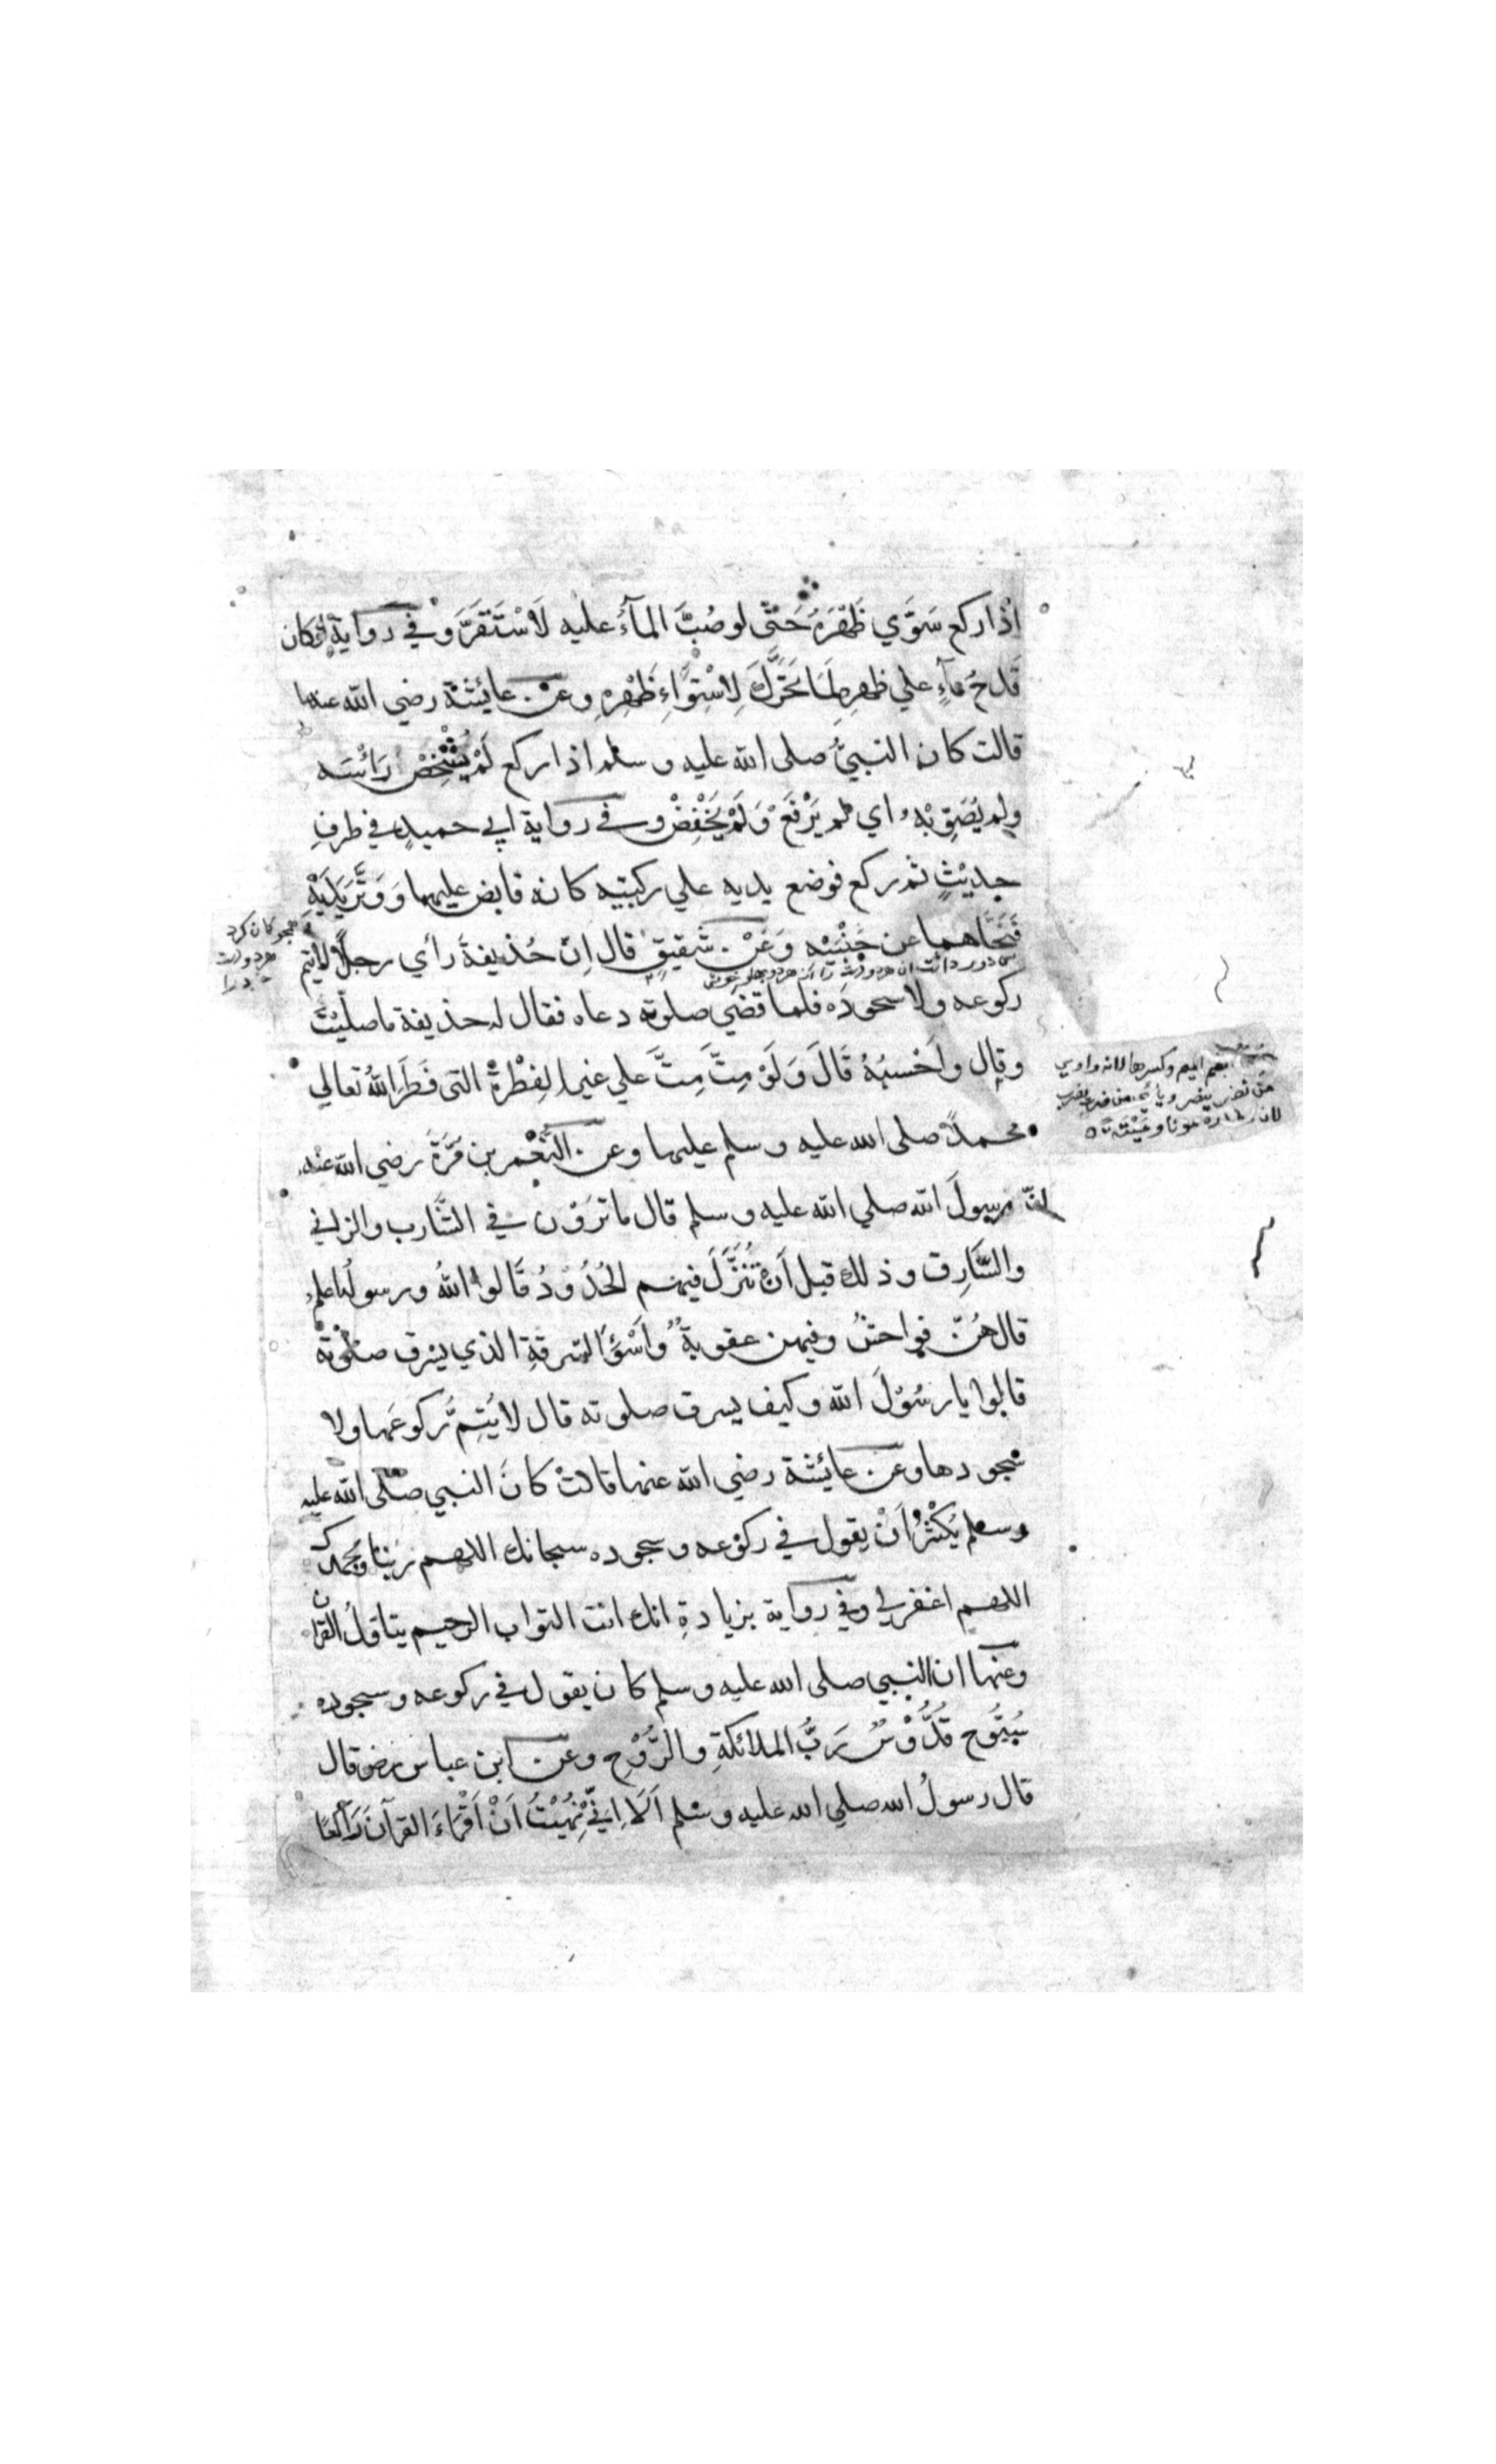 اِذا ركع سَوَّي ظَهْرَهُ حَتّٰي لو صُبَّ المآءُ عليه لَاسْتَقَرَّ وَفي رواية لو كان
قَدحُ مآءٍ علي ظهرِه لَمَا تَحَرَّكَ لِاسْتِوَاءِ ظَهْرِهِ وعن عائشة رضي الله عنها
قالت كان النبيُّ صلى الله عليه وسلم اذا ركع لَمْ يُشْخِصْ رَأْسَه
ولم يُصَوِّبْهُ اي لم يَرْفَعْ وَلَمْ يَخْفِضْ وفي رواية ابي حميدٍ في طرفِ
حديثٍ ثم ركع فوضع يديه علي ركبتيه كانه قابض عليهما وَوَتَّرَ يَدَيْهِ
فَنَحَّاهما عن جَنْبَيْه وَعَنْ شَقيقٍ قال اِنّ حُذيفةَ رأي رجلًا لايتم
ركوعه ولا سجودَه فلما قضي صلوته دعاه فقال له حذيفة ماصلّيْتَ
وقال واَحْسبُهُ قَالَ وَلَوْ مِتَّ مِتَّ علي غير الفِطْرَةِ التي فَطَرَ اللهُ تعالي
محمدًا صلى الله عليه وسلم عليها وعن النُّعْمٰن بن مُرَّةَ رضي الله عنه
انّ رسولَ الله صلي الله عليه وسلم قال ماترَوْن في الشَّارب والزاني
والسَّارِق وذلك قبل اَنْ تُنَزَّلَ فيهم الحُدُوْدُ قَالوا اللهُ ورسولُه اعلم
قال هُنّ فواحشُ وفيهن عقوبةٌ وأَسْوَأُ السّرقةِ الذي يسْرق صلوته
قالوا يا رسُوْلَ الله وكيف يسرق صلوته قال لايُتِمُّ ركوعَها ولا
سُجودها وعن عائشة رضي الله عنها قالتْ كانَ النبي صلّى الله عليه
وسلم يُكْثِرُ اَنْ يقول في ركوعه وسجوده سبحانك اللهم ربّنا وبحمدك
اللهم اغفرلي وفي رواية بزيادةِ انك انت التواب الرحيم يتاوّلُ القرآن
وعنها ان النبي صلى الله عليه وسلم كان يقول في ركوعه وسجوده
سُبّوح قُدُّوْسٌ رَبُّ الملائكةِ والرُّوْحِ وعن ابن عباس رض قال
قال رسولُ الله صلي الله عليه وسلم اَلَا اِنّي نُهِيْتُ اَنْ اَقْرَاءَ القرآنَ رَاكعًا